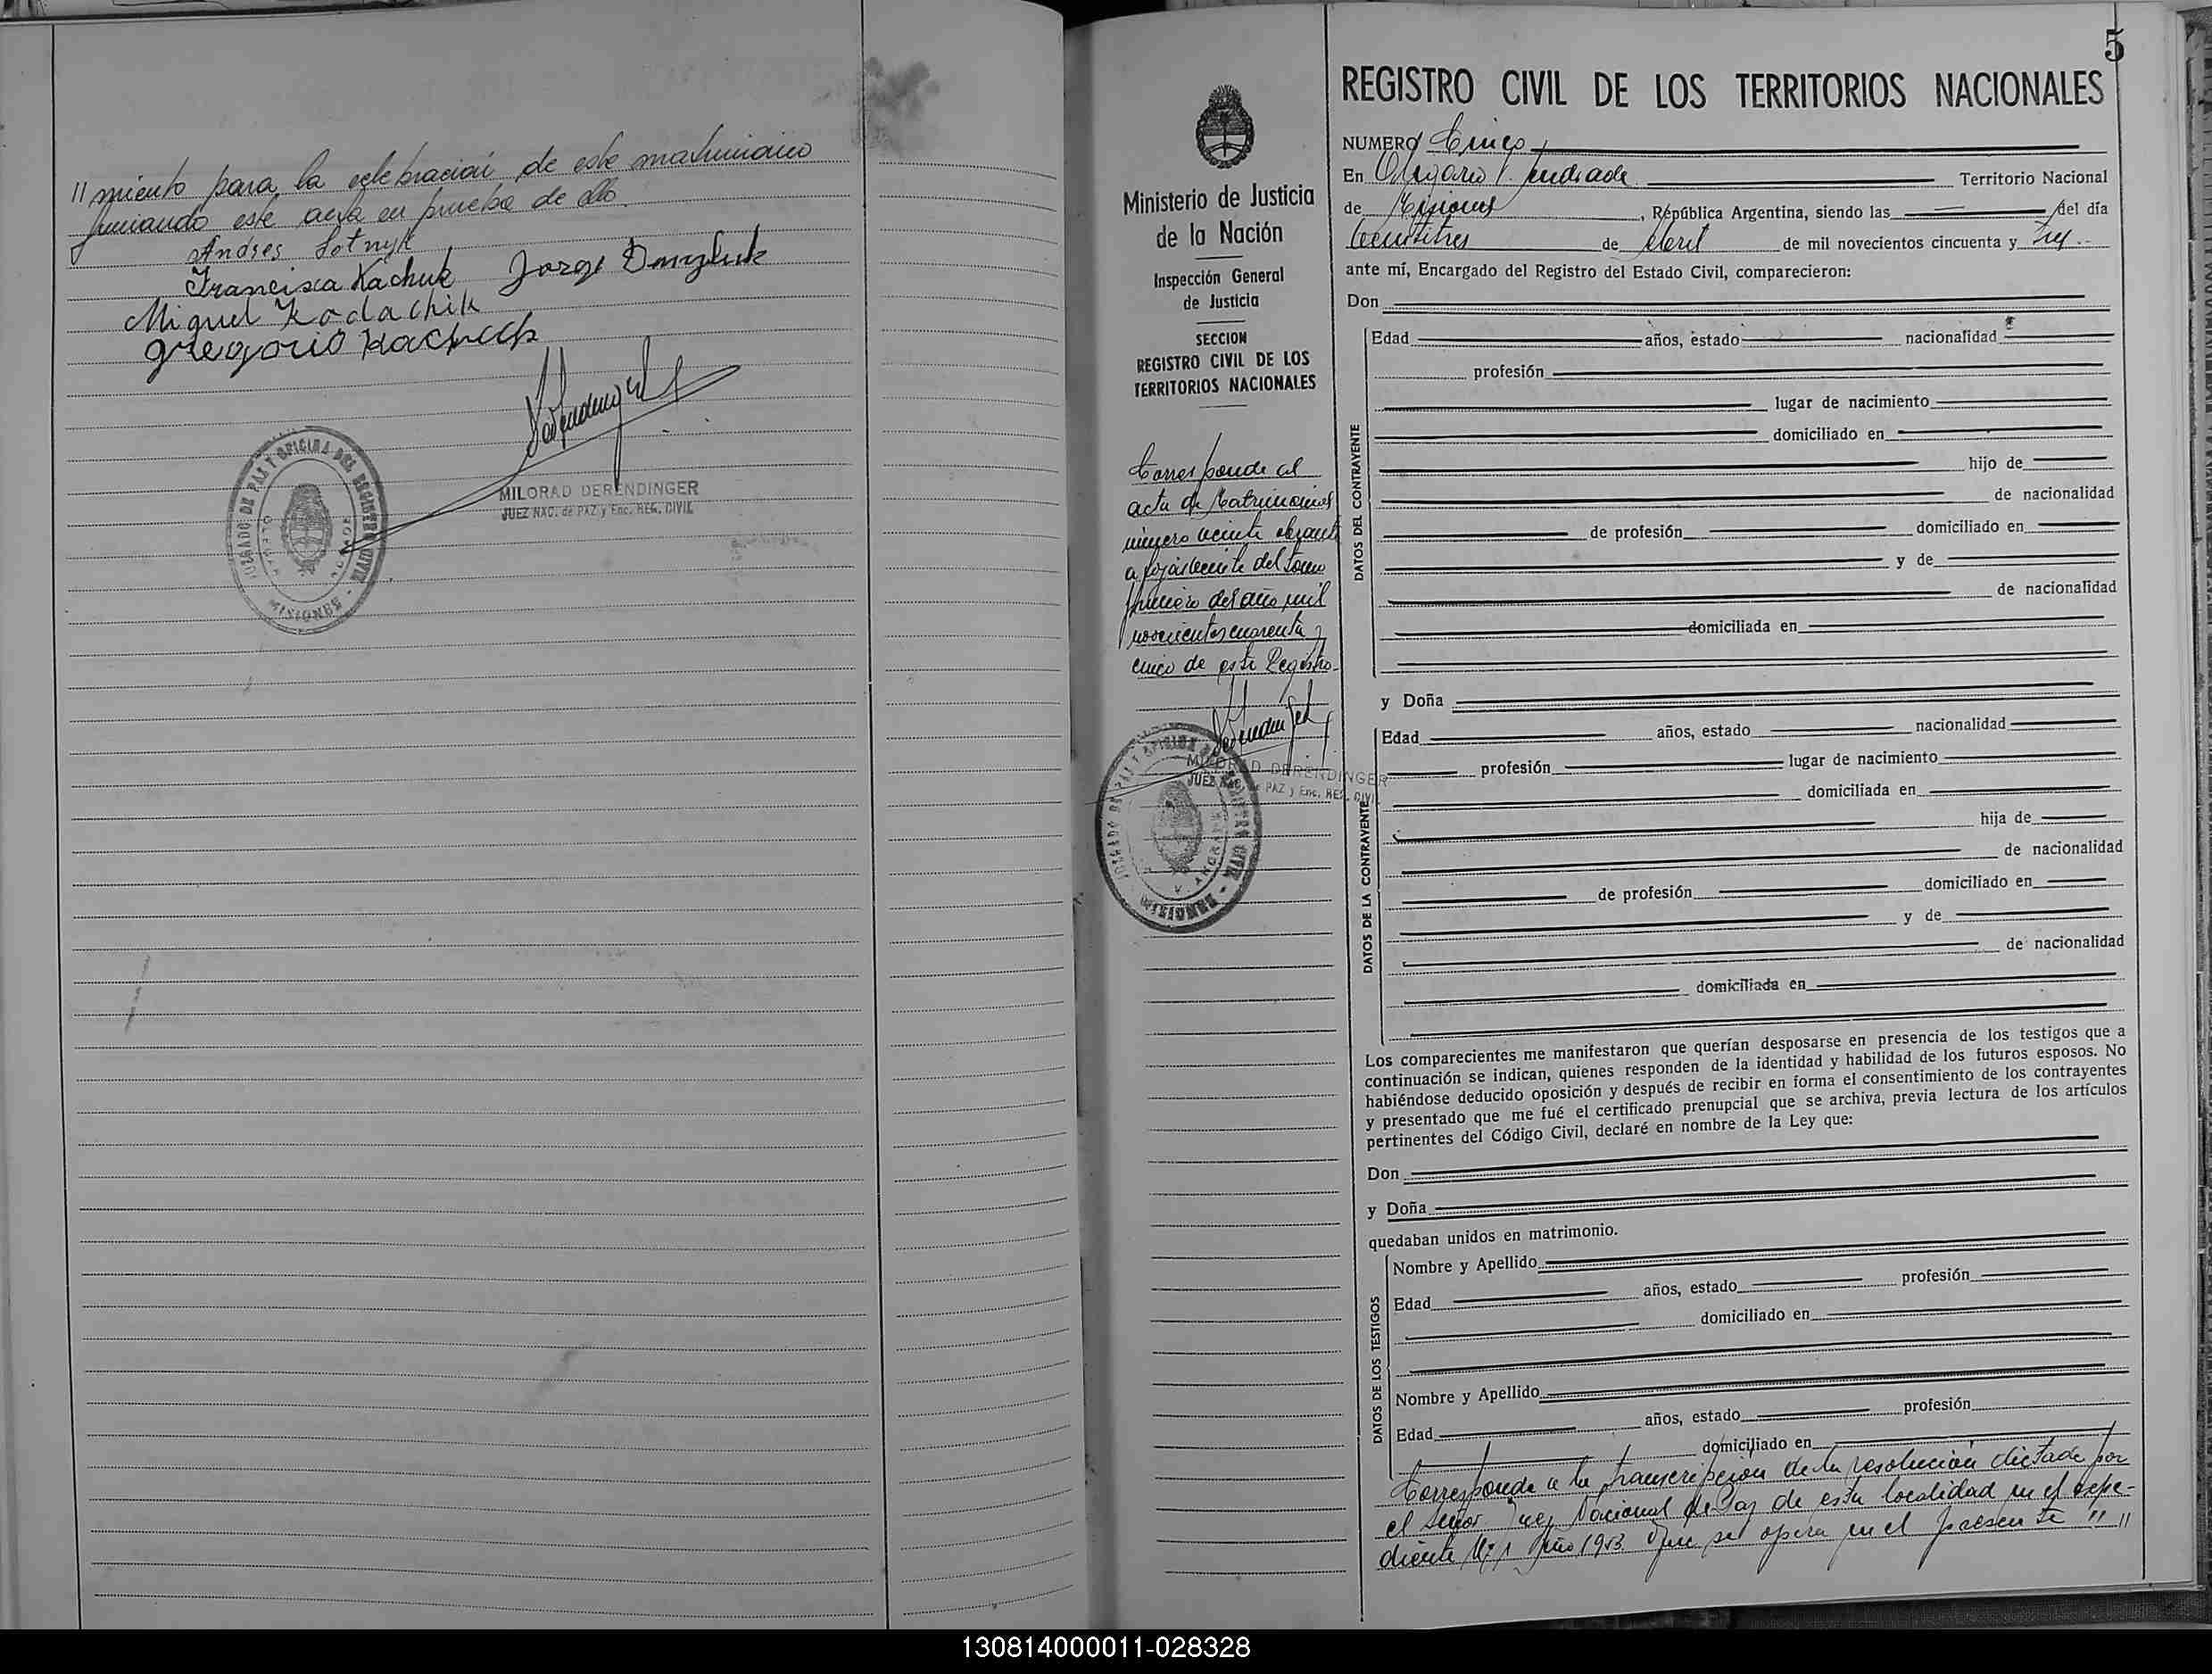 // miento para la celebración de este matrimonio
firmando este acta en prueba de ello.
Andres Sotnyk
Francisca Kachuk Jorge
Miguel Kadachik
gregorio Kachuk
JUZGADO DE PAZ Y OFICINA DEL REGISTRO CIVIL
MISIONES
MILORAD DERENDINGER
JUEZ NAC. de PAZ y Enc. REG. CIVIL
Ministerio de Justicia
de la Nación
Inspección General
de Justicia
SECCION
REGISTRO CIVIL DE LOS
TERRITORIOS NACIONALES
Corresponde al
acta de Matrimonios
número veinte obrante
a fojas veinte del tomo
primero del año mil
novecientos cuarenta y
cinco de este Registro.
MILORAD DERENDINGER
JUEZ NAC. de PAZ y Enc. REG. CIVIL
JUZGADO DE PAZ Y OFICINA DEL REGISTRO CIVIL -
MISIONES
5
REGISTRO CIVIL DE LOS TERRITORIOS NACIONALES
NUMERO Cinco
En Olegario V. Andrade Territorio Nacional
de Misiones, República Argentina, siendo las del día
veintitres de Abril de mil novecientos cincuenta y tres.-
ante mí, Encargado del Registro del Estado Civil, comparecieron:
Don
DATOS DEL CONTRAYENTE
Edad años, estado nacionalidad
profesión
lugar de nacimiento
domiciliado en
hijo de
de nacionalidad
de profesión domiciliado en
y de
de nacionalidad
domiciliada en
y Doña
DATOS DE LA CONTRAYENTE
Edad años, estado nacionalidad
profesión lugar de nacimiento
domiciliada en
hija de
de nacionalidad
de profesión domiciliado en
y de
de nacionalidad
domiciliada en
Los comparecientes me manifestaron que querían desposarse en presencia de los testigos que a
continuación se indican, quienes responden de la identidad y habilidad de los futuros esposos. No
habiéndose deducido oposición y después de recibir en forma el consentimiento de los contrayentes
y presentado que me fué el certificado prenupcial que se archiva, previa lectura de los artículos
pertinentes del Código Civil, declaré en nombre de la Ley que:
Don
y Doña
quedaban unidos en matrimonio.
DATOS DE LOS TESTIGOS
Nombre y Apellido
Edad años, estado profesión
domiciliado en
Nombre y Apellido
Edad años, estado profesión
domiciliado en
Corresponde a la transcripción de la resolución dictada por
el señor Juez Nacional de Paz de esta localidad en el expe-
diente Nº 1 Año 1953. Que se opera en el presente " "
130814000011-028328